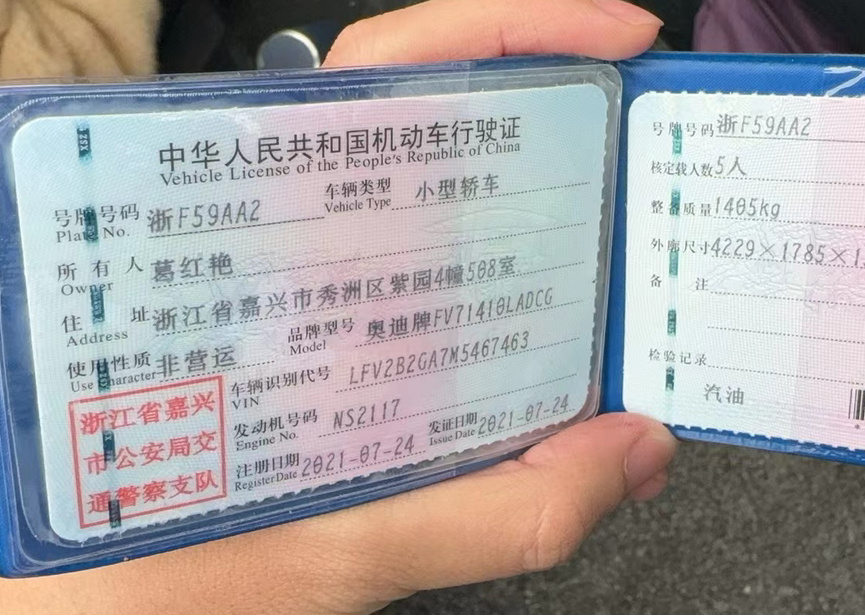 中华人民共和国机动车行驶证
Vehicle License of the People's Republic of China
号牌号码 浙F59AA2 车辆类型 小型轿车
Plate No. Vehicle Type
所有人 葛红艳
Owner
住址 浙江省嘉兴市秀洲区紫园4幢508室
Address
使用性质 非营运 品牌型号 奥迪牌FV71410LADCG
Use Character Model
车辆识别代号 LFV2B2GA7M5467463
VIN
发动机号码 NS2117
Engine No.
注册日期 2021-07-24 发证日期 2021-07-24
Register Date Issue Date
浙江省嘉兴
市公安局交
通警察支队
号牌号码 浙F59AA2
核定载人数 5人
整备质量 1405kg
外廓尺寸 4229×1785×1
备注
检验记录
汽油